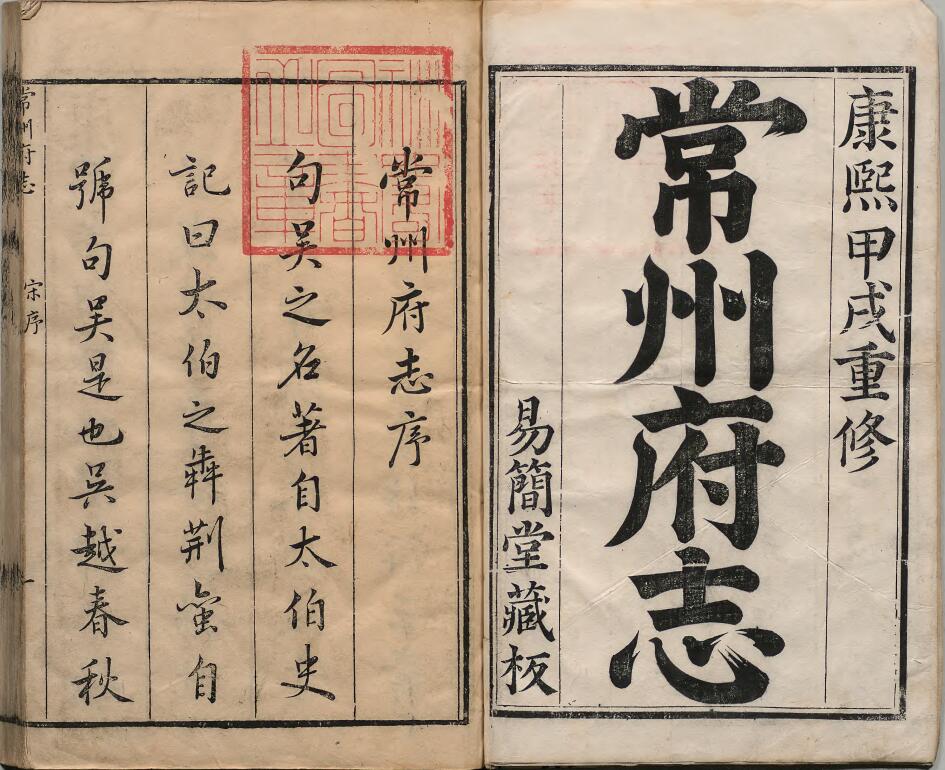 康熙甲戌重修
常州府志
易簡堂藏板
常州府志序
句吳之名著自太伯史
記曰太伯之犇荆蛮自
號句吳是也吳越春秋
常州府志 宋序 一